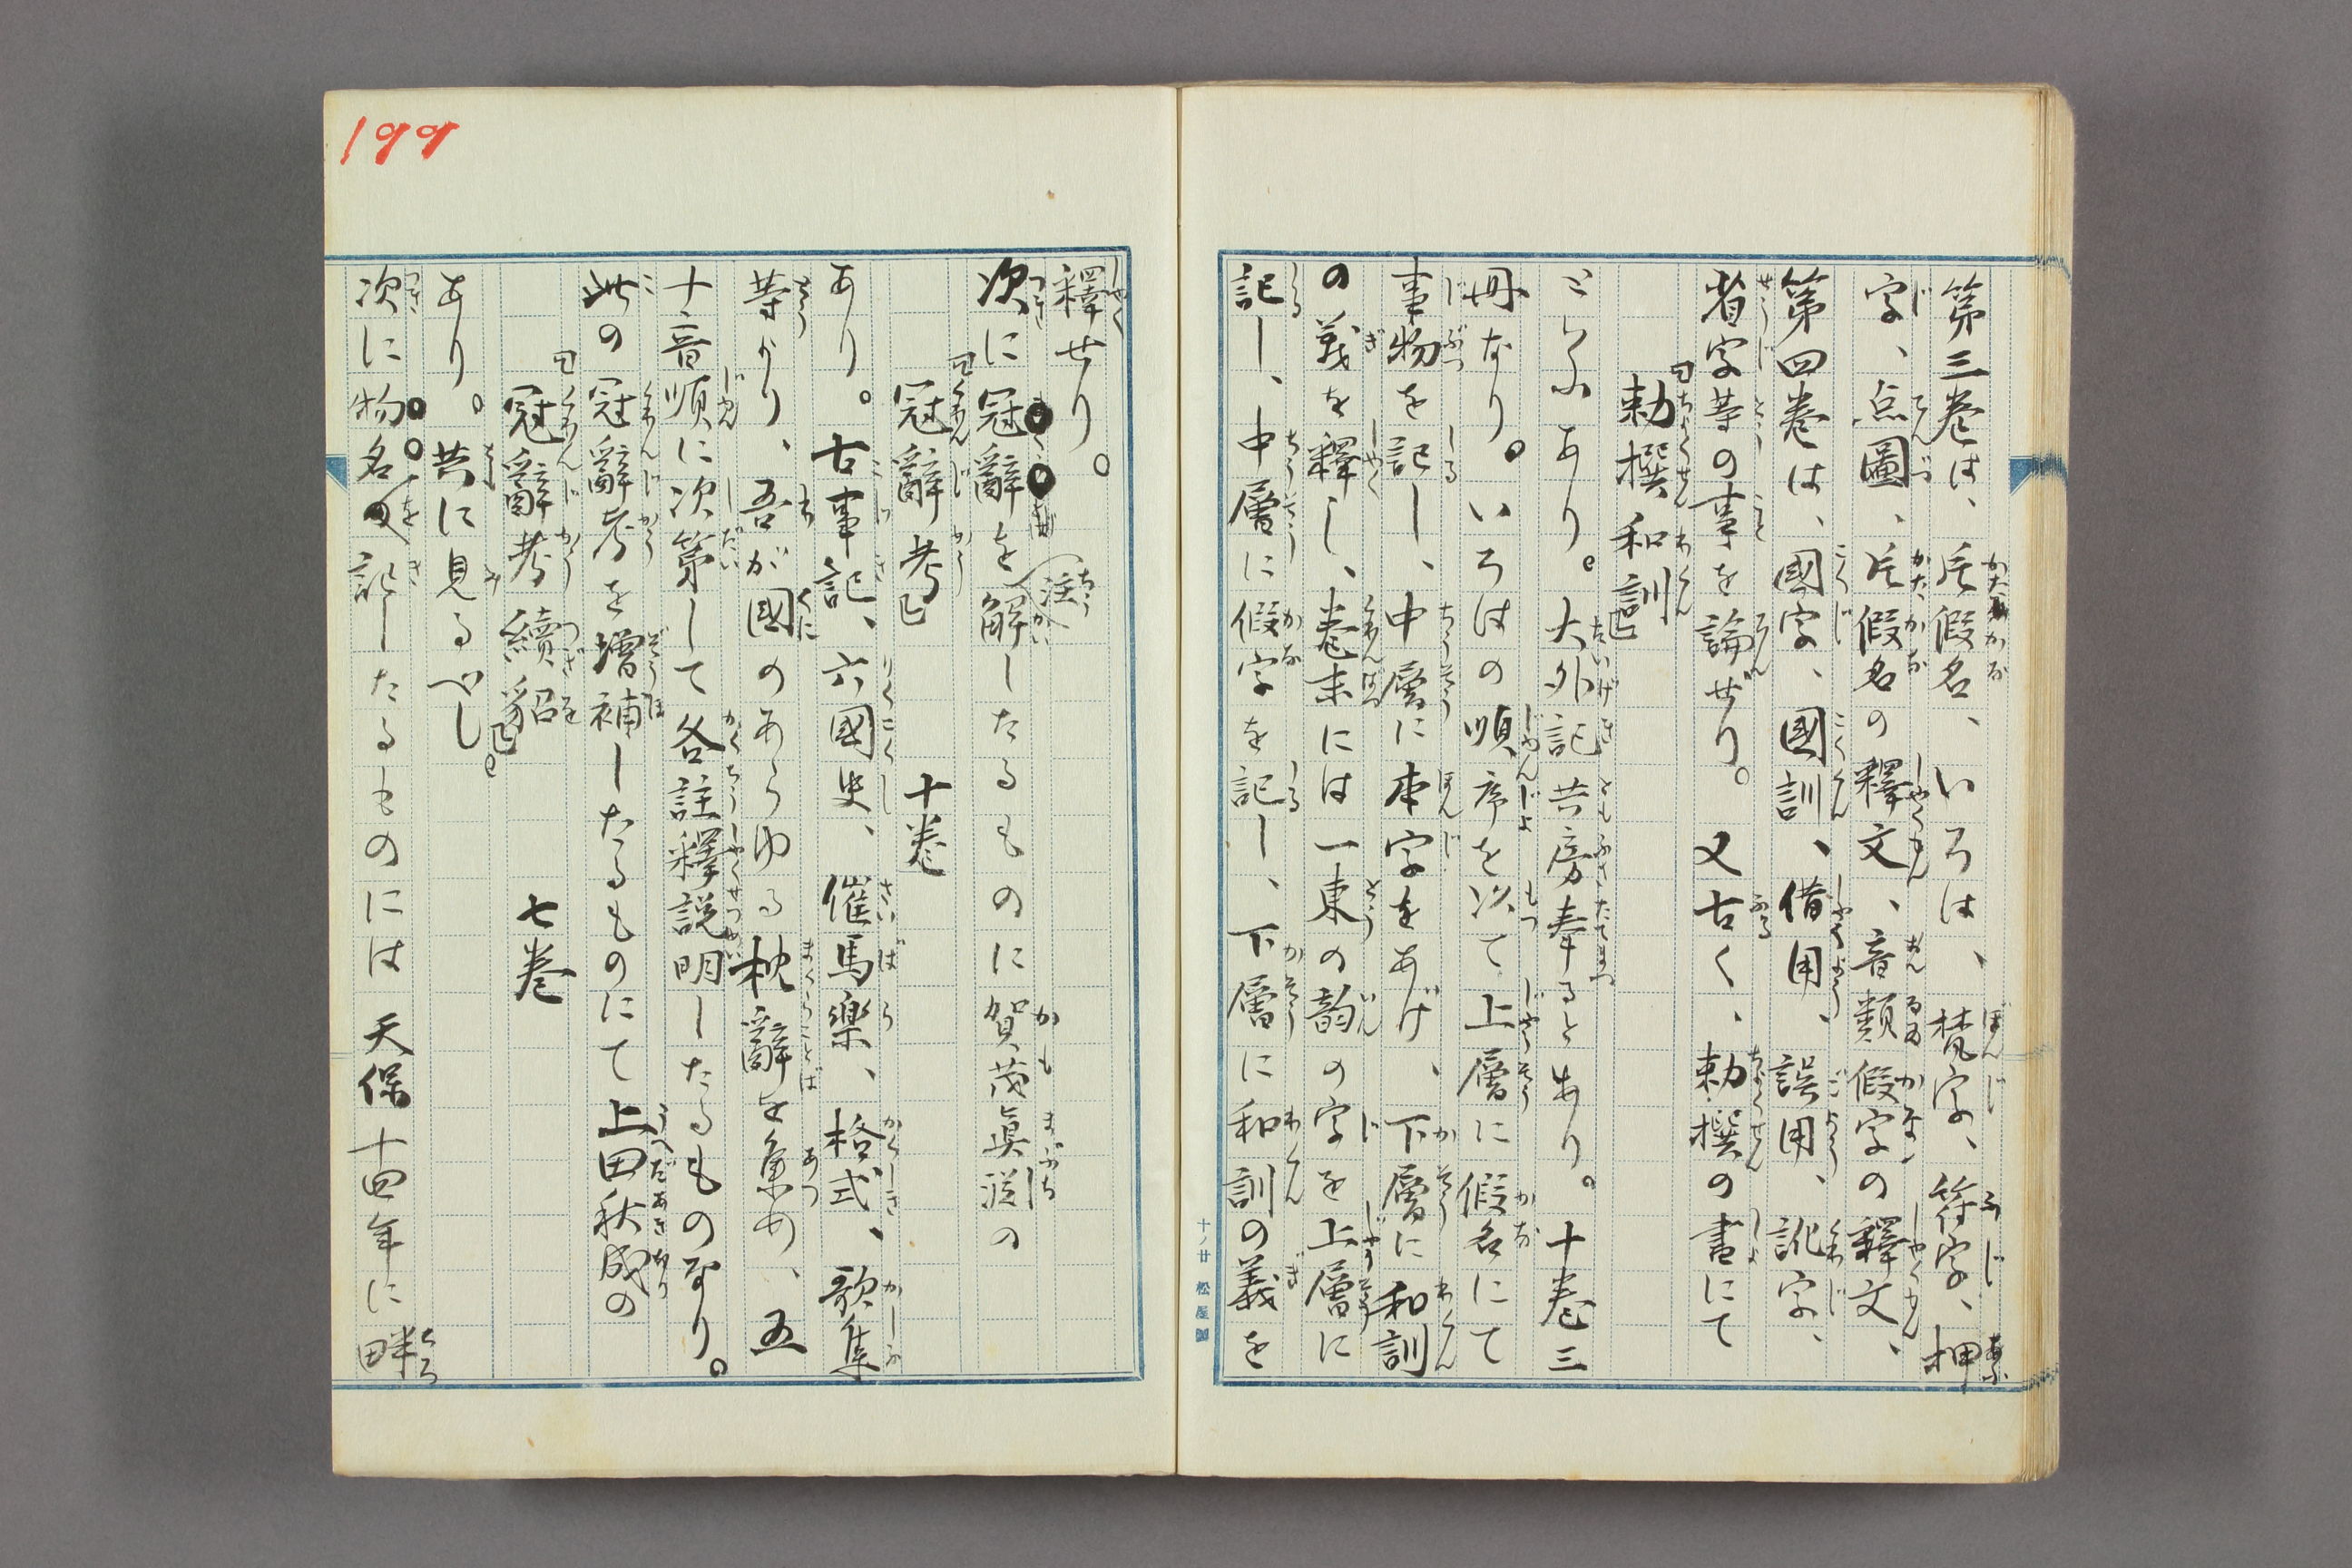 第三巻は、片假名、いろは、梵字、符字、押
字、点圖、片假名の釋文、音類假字の釋文、
第四巻は、國字、國訓、借用、誤用、訛字、
省字等の事を論ぜり。又古く、勅撰の書にて
「勅撰和訓」
といふあり。大外記共房奉るとあり。十巻三
册なり。いろはの順序を以て上層に假名にて
事物を記し、中層に本字をあげ、下層に和訓
の義を釋し、巻末には一東の韵の字を上層に
記し、中層に假字を記し、下層に和訓の義を
十ノ廿 松屋製
199
釋せり。
次に冠辭を注解したるものに賀茂眞淵の
「冠辭考」 十巻
あり。古事記、六國史、催馬樂、格式、歌集
等より、吾が國のあらゆる枕辭を集め、五
十音順に次第して各註釋説明したるものなり。
此の冠辭考を増補したるものにて上田秋成の
「冠辭考續貂」 七巻
あり。共に見るべし。
次に物名を記したるものには天保十四年に畔